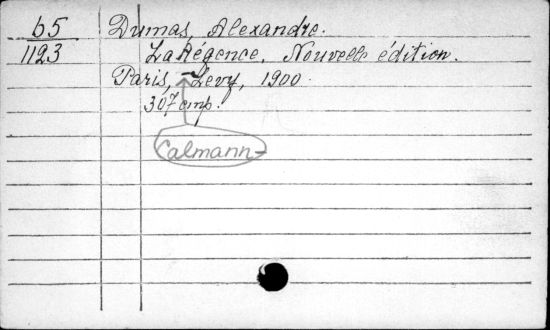 65 Dumas, Alexandre.
1123 La Régence. Nouvelle édition.
Paris, -Levy, 1900.
307 cmp.
Calmann-